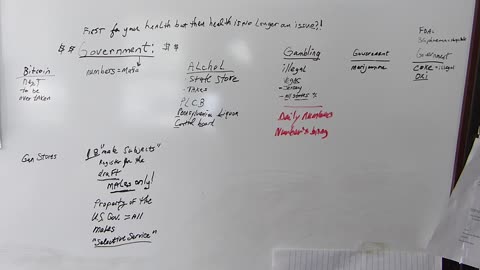 FIRST for your health but then health is no longer an issue?!
$$ Government: $$
Bitcoin
Next
to be
over taken
numbers = Mafia
ALchol
State Store
Taxes
PLCB
Pennsylvania Liquor
Control board
Gambling
illegal
Vegas
Jersey
all states %
Daily numbers
Number's bing
Government
marijuana
FDA:
Government
CBD = illegal
Gun Stores
18 "male subjects"
Register for the
draft
MALES only!
Property of the
US Gov. = All
males
"Selective Service"